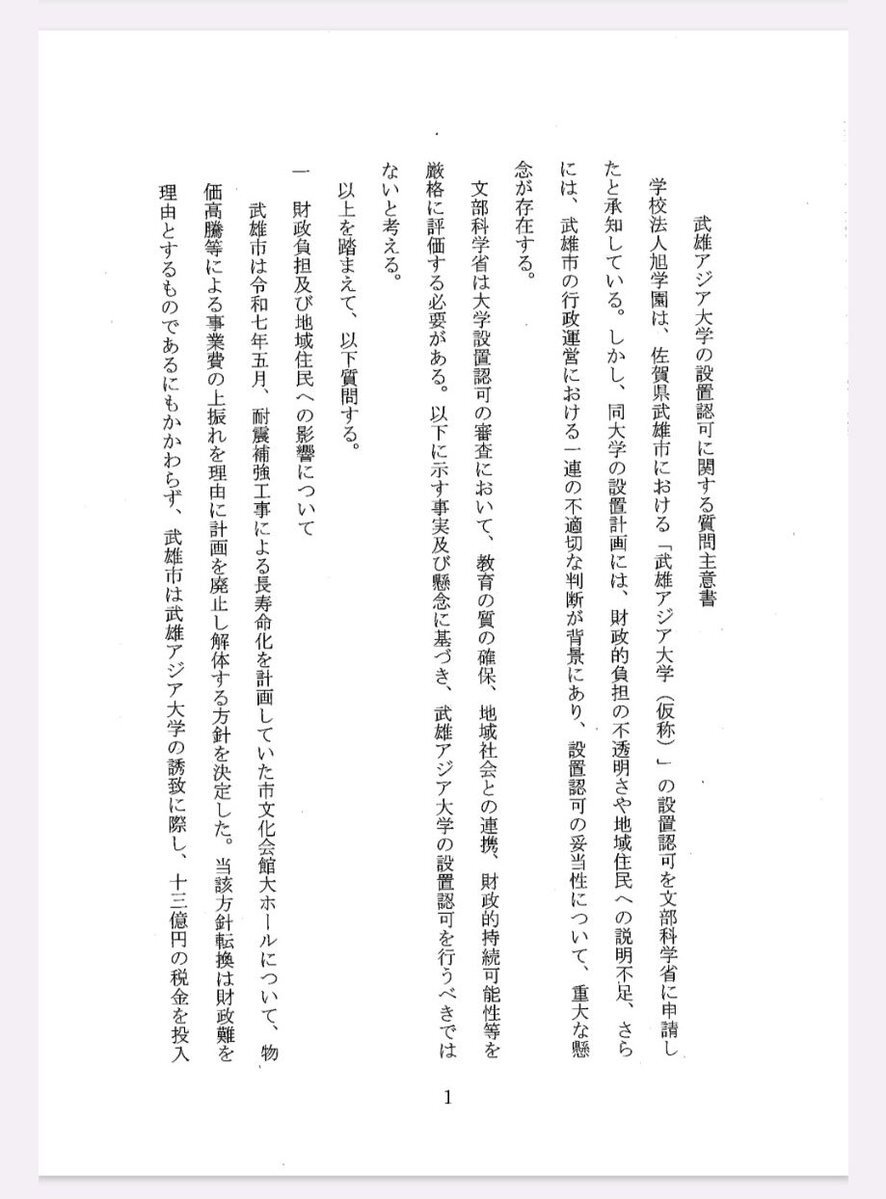 武雄アジア大学の設置認可に関する質問主意書
学校法人旭学園は、佐賀県武雄市における「武雄アジア大学（仮称）」の設置認可を文部科学省に申請し
たと承知している。しかし、同大学の設置計画には、財政的負担の不透明さや地域住民への説明不足、さら
には、武雄市の行政運営における一連の不適切な判断が背景にあり、設置認可の妥当性について、重大な懸
念が存在する。
文部科学省は大学設置認可の審査において、教育の質の確保、地域社会との連携、財政的持続可能性等を
厳格に評価する必要がある。以下に示す事実及び懸念に基づき、武雄アジア大学の設置認可を行うべきでは
ないと考える。
以上を踏まえて、以下質問する。
一　財政負担及び地域住民への影響について
武雄市は令和七年五月、耐震補強工事による長寿命化を計画していた市文化会館大ホールについて、物
価高騰等による事業費の上振れを理由に計画を廃止し解体する方針を決定した。当該方針転換は財政難を
理由とするものであるにもかかわらず、武雄市は武雄アジア大学の誘致に際し、十三億円の税金を投入
1